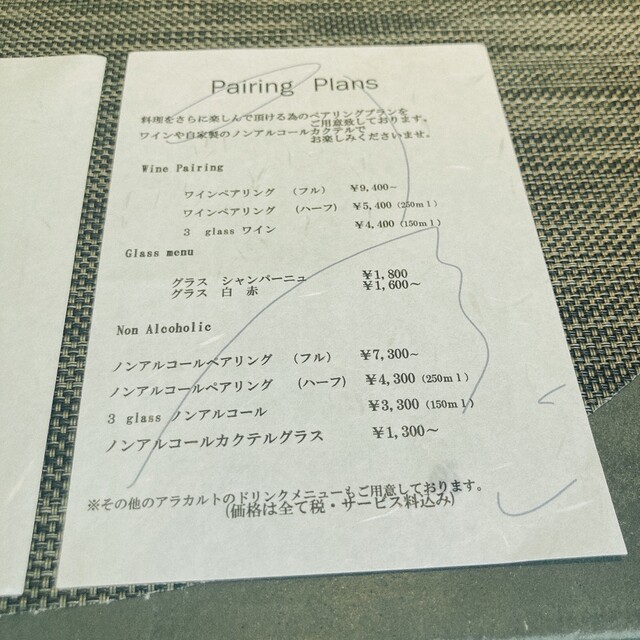 Pairing Plans
料理をさらに楽しんで頂ける為のペアリングプランを
ご用意致しております。
ワインや自家製のノンアルコールカクテルで
お楽しみくださいませ。
Wine Pairing
ワインペアリング （フル） ￥9,400～
ワインペアリング （ハーフ） ￥5,400（250ml）
3 glass ワイン ￥4,400（150ml）
Glass menu
グラス シャンパーニュ ￥1,800
グラス 白 赤 ￥1,600～
Non Alcoholic
ノンアルコールペアリング （フル） ￥7,300～
ノンアルコールペアリング （ハーフ） ￥4,300（250ml）
3 glass ノンアルコール ￥3,300（150ml）
ノンアルコールカクテルグラス ￥1,300～
※その他のアラカルトのドリンクメニューもご用意しております。
(価格は全て税・サービス料込み)